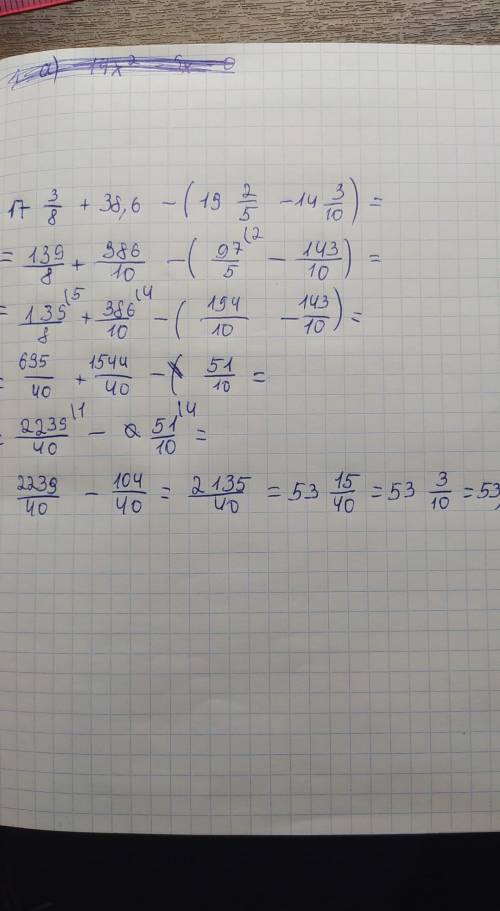 1. a) 14x² 5x = 0
17 3/8 + 38,6 - (19 2/5 - 14 3/10) =
= 139/8 + 386/10 - (97/5 (2 - 143/10) =
= 139/8 (5 + 386/10 (4 - (194/10 - 143/10) =
= 695/40 + 1544/40 - ( 51/10 =
= 2239/40 (1 - 51/10 (4 =
2239/40 - 104/40 = 2135/40 = 53 15/40 = 53 3/10 = 53,